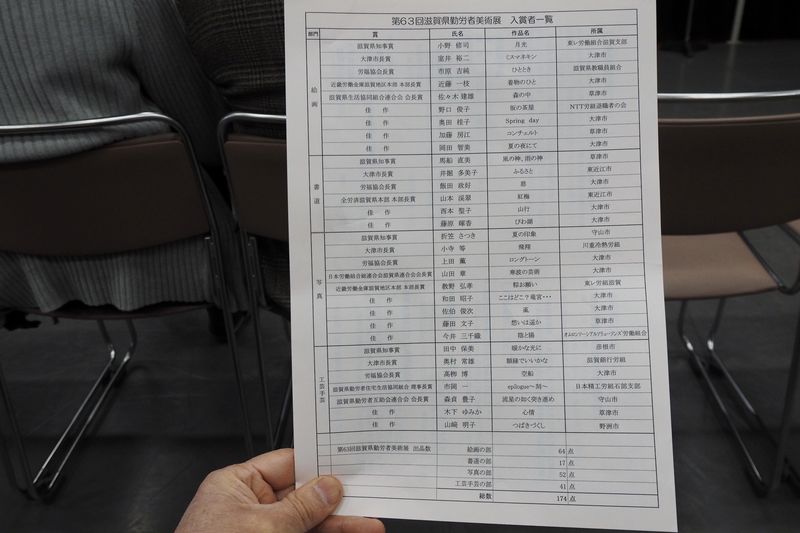 第63回滋賀県勤労者美術展 入賞者一覧
部門 賞 氏名 作品名 所属
絵画
滋賀県知事賞 小野 修司 月光 東レ労働組合滋賀支部
大津市長賞 室井 裕二 ミスマネキン 大津市
労福協会長賞 市原 吉純 ひととき 滋賀県教職員組合
近畿労働金庫滋賀地区本部 本部長賞 近藤 一枝 着物のひと 大津市
滋賀県生活協同組合連合会 会長賞 佐々木 建雄 森の中 草津市
佳作 野口 俊子 坂の茶屋 NTT労組退職者の会
佳作 奥田 桂子 Spring day 大津市
佳作 加藤 房江 コンチェルト 草津市
佳作 岡田 智美 夏の夜にて 大津市
書道
滋賀県知事賞 馬船 直美 風の神、雨の神 草津市
大津市長賞 井堀 多美子 ふるさと 東近江市
労福協会長賞 飯田 政好 大津市
全労済滋賀県本部 本部長賞 山本 渓翠 紅梅 東近江市
佳作 西本 聖子 山行 大津市
佳作 藤原 暉香 びわ湖 大津市
写真
滋賀県知事賞 折笠 さつき 夏の印象 守山市
大津市長賞 小寺 等 飛翔 川重冷熱労組
労福協会長賞 上田 薫 ロングトーン 大津市
日本労働組合総連合会滋賀県連合会会長賞 山田 章 寒波の芸術 大津市
近畿労働金庫滋賀地区本部 本部長賞 教野 弘孝 鯨お願い 東レ労組滋賀
佳作 和田 昭子 ここはどこ？竜宮・・・ 大津市
佳作 佐伯 俊次 嵐 大津市
佳作 藤田 文子 想いは遥か 草津市
佳作 今井 三千穂 陰と陽 オムロンソーシアルソリューションズ労働組合
工芸手芸
滋賀県知事賞 田中 保美 暖かな光に 彦根市
大津市長賞 奥村 常雄 額縁でいいかな 滋賀銀行労組
労福協会長賞 高栁 博 空船 大津市
滋賀県勤労者住宅生活協同組合 理事長賞 市岡 一 epilogue～刻～ 日本精工労組石部支部
滋賀県勤労者互助会連合会 会長賞 森貞 豊子 流星の如く突き進め 守山市
佳作 木下 ゆみか 心情 草津市
佳作 山﨑 明子 つばきづくし 野洲市
第63回滋賀県勤労者美術展 出品数 絵画の部 64 点
書道の部 17 点
写真の部 52 点
工芸手芸の部 41 点
総数 174 点